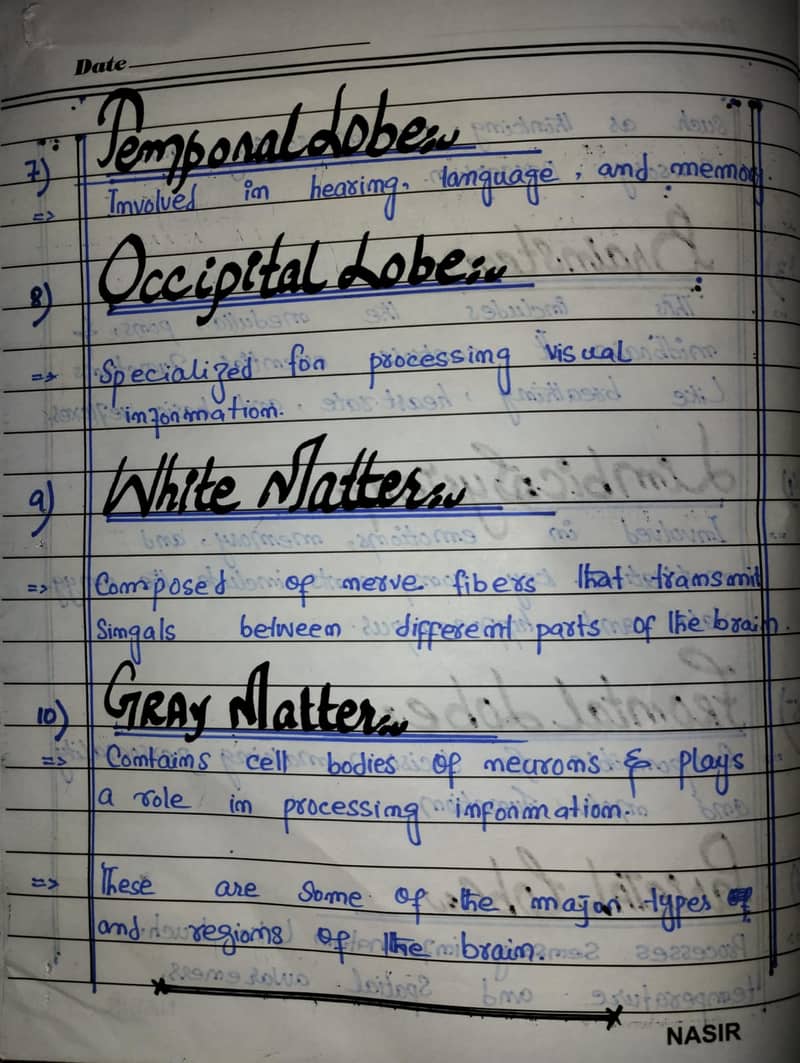 Date
7) Temporal Lobe:
=> Involved in hearing, language, and memory.
8) Occipital Lobe:
=> Specialized for processing visual
information.
9) White Matter:
=> Composed of nerve fibers that transmit
Singals between different parts of the brain.
10) GRAY Matter:
=> Contains cell bodies of neurons & plays
a role in processing information.
=> These are Some of the major types
and regions of the brain.
NASIR